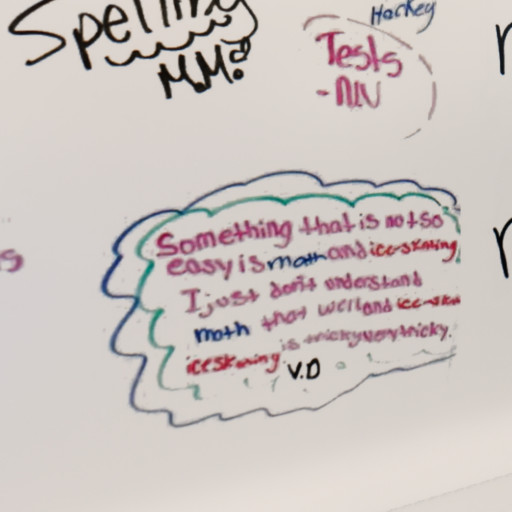 Spelling
M.M.
Hockey
Tests
-NIV
Something that is not so
easy is math and iceskating
I just don't understand
math that well and ice-ska
iceskating is tricky very tricky.
V.D